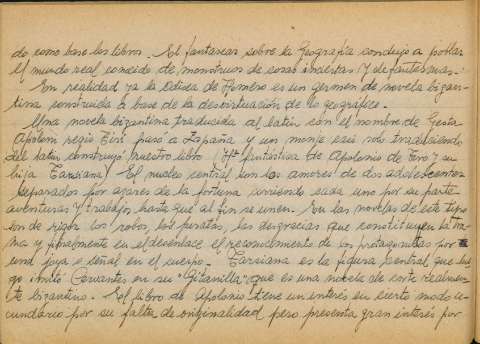 do como base los libros. El fantasear sobre la Geografía condujo a poblar
el mundo real conocido de monstruos de cosas inciertas y de fantasmas.
En realidad ya la Odisea de Homero es un germen de novela bizan-
tina construida a base de la desvirtuación de lo geográfico.
Una novela bizantina traducida al latín con el nombre de Gesta
Apoloni regis Tiri pasó a España y un monje casi solo traduciendo
del latín construyó nuestro libro (Hª fantástica de Apolonio de Tiro y su
hija Tarsiana) El nucleo central son los amores de dos adolescentes
separados por azares de la fortuna corriendo cada uno por su parte
aventuras y trabajos hasta que al fin se unen. En las novelas de este tipo
son de rigor los robos, los piratas, las desgracias que constituyen la tra-
ma y finalmente en el desenlace el reconocimiento de los protagonistas por
una joya o señal en el cuerpo. Tarsiana es la figura central que lue-
go imitó Cervantes en su "Gitanilla" que es una novela de corte realmen-
te bizantino. El libro de Apolonio tiene un interés en cierto modo se-
cundario por su falta de originalidad pero presenta gran interés por